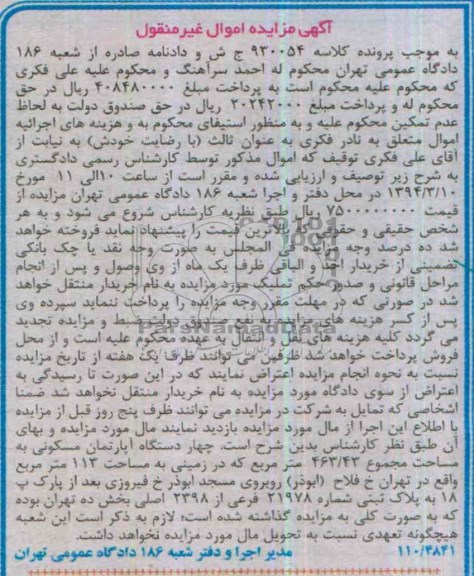 آگهی مزایده اموال غیرمنقول
به موجب پرونده کلاسه ۹۳۰۰۵۴ ج ش و دادنامه صادره از شعبه ۱۸۶
دادگاه عمومی تهران محکوم له احمد سرآهنگ و محکوم علیه علی فکری
که محکوم علیه محکوم است به پرداخت مبلغ ۴۰۸۴۸۰۰۰۰ ریال در حق
محکوم له و پرداخت مبلغ ۲۰۲۴۲۰۰۰ ریال در حق صندوق دولت به لحاظ
عدم تمکین محکوم علیه و به منظور استیفای محکوم به و هزینه های اجرائیه
اموال متعلق به نادر فکری به عنوان ثالث (با رضایت خودش) به نیابت از
آقای علی فکری توقیف که اموال مذکور توسط کارشناس رسمی دادگستری
به شرح زیر توصیف و ارزیابی شده و مقرر است از ساعت ۱۰الی ۱۱ مورخ
۱۳۹۴/۳/۱۰ در محل دفتر و اجرا شعبه ۱۸۶ دادگاه عمومی تهران مزایده از
قیمت ۷۵۰۰۰۰۰۰۰۰ ریال طبق نظریه کارشناس شروع می شود و به هر
شخص حقیقی و حقوقی که بالاترین قیمت را پیشنهاد نماید فروخته خواهد
شد ده درصد وجه مزایده فی المجلس به صورت وجه نقد یا چک بانکی
تضمینی از خریدار اخذ و الباقی ظرف یک ماه از وی وصول و پس از انجام
مراحل قانونی و صدور حکم تملیک مورد مزایده به نام خریدار منتقل خواهد
شد در صورتی که در مهلت مقرر وجه مزایده را پرداخت ننماید سپرده وی
پس از کسر هزینه های مزایده به نفع صندوق دولت ضبط و مزایده تجدید
می گردد کلیه هزینه های نقل و انتقال به عهده محکوم علیه است و از محل
فروش پرداخت خواهد شد طرفین می توانند ظرف یک هفته از تاریخ مزایده
نسبت به نحوه انجام مزایده اعتراض نمایند که در این صورت تا رسیدگی به
اعتراض از سوی دادگاه مورد مزایده به نام خریدار منتقل نخواهد شد ضمنا
اشخاصی که تمایل به شرکت در مزایده می توانند ظرف پنج روز قبل از مزایده
با اطلاع این اجرا از مال مورد مزایده بازدید نمایند مال مورد مزایده و بهای
آن طبق نظر کارشناس بدین شرح است. چهار دستگاه آپارتمان مسکونی به
مساحت مجموع ۴۶۳/۴۳ متر مربع که در زمینی به مساحت ۱۱۳ متر مربع
واقع در تهران خ فلاح (ابوذر) روبروی مسجد ابوذر خ فیروزی بعد از پارک پ
۱۸ به پلاک ثبتی شماره ۲۱۹۷۸ فرعی از ۲۳۹۸ اصلی بخش ده تهران بوده
که به صورت کلی به مزایده گذاشته شده است؛ لازم به ذکر است این شعبه
هیچگونه تعهدی نسبت به تحویل مال مورد مزایده نخواهد داشت.
۱۱۰/۴۸۴۱ مدیر اجرا و دفتر شعبه ۱۸۶ دادگاه عمومی تهران
ParsNamadData